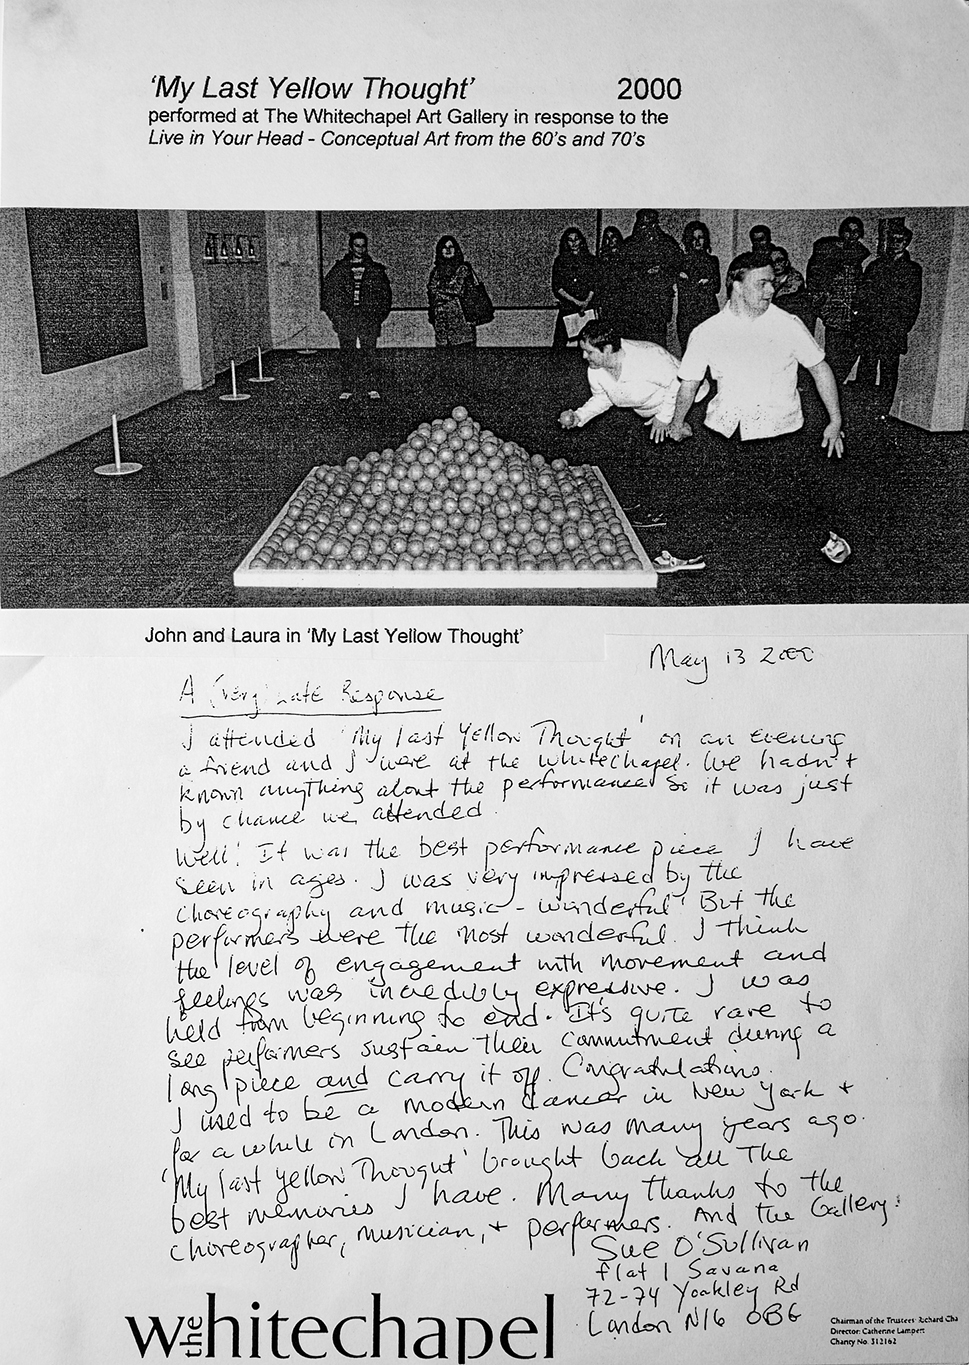 'My Last Yellow Thought' 2000
performed at The Whitechapel Art Gallery in response to the
Live in Your Head - Conceptual Art from the 60's and 70's
John and Laura in 'My Last Yellow Thought'
May 13 2000
A (very) Late Response
I attended 'My last Yellow Thought' on an evening
a friend and I were at the Whitechapel. We hadn't
known anything about the performance so it was just
by chance we attended.
Well! It was the best performance piece I have
seen in ages. I was very impressed by the
choreography and music - wonderful! But the
performers were the most wonderful. I think
the level of engagement with movement and
feelings was incredibly expressive. I was
held from beginning to end. It's quite rare to
see performers sustain their commitment during a
long piece and carry it off. Congratulations.
I used to be a modern dancer in New York +
for a while in London. This was many years ago.
'My last Yellow Thought' brought back all the
best memories I have. Many thanks to the
choreographer, musician, + performers. And the Gallery!
Sue O'Sullivan
Flat 1 Savana
72-74 Yoakley Rd
London N16 0BG
the Whitechapel
Chairman of the Trustees: Richard Cha
Director: Catherine Lampert
Charity No. 312162